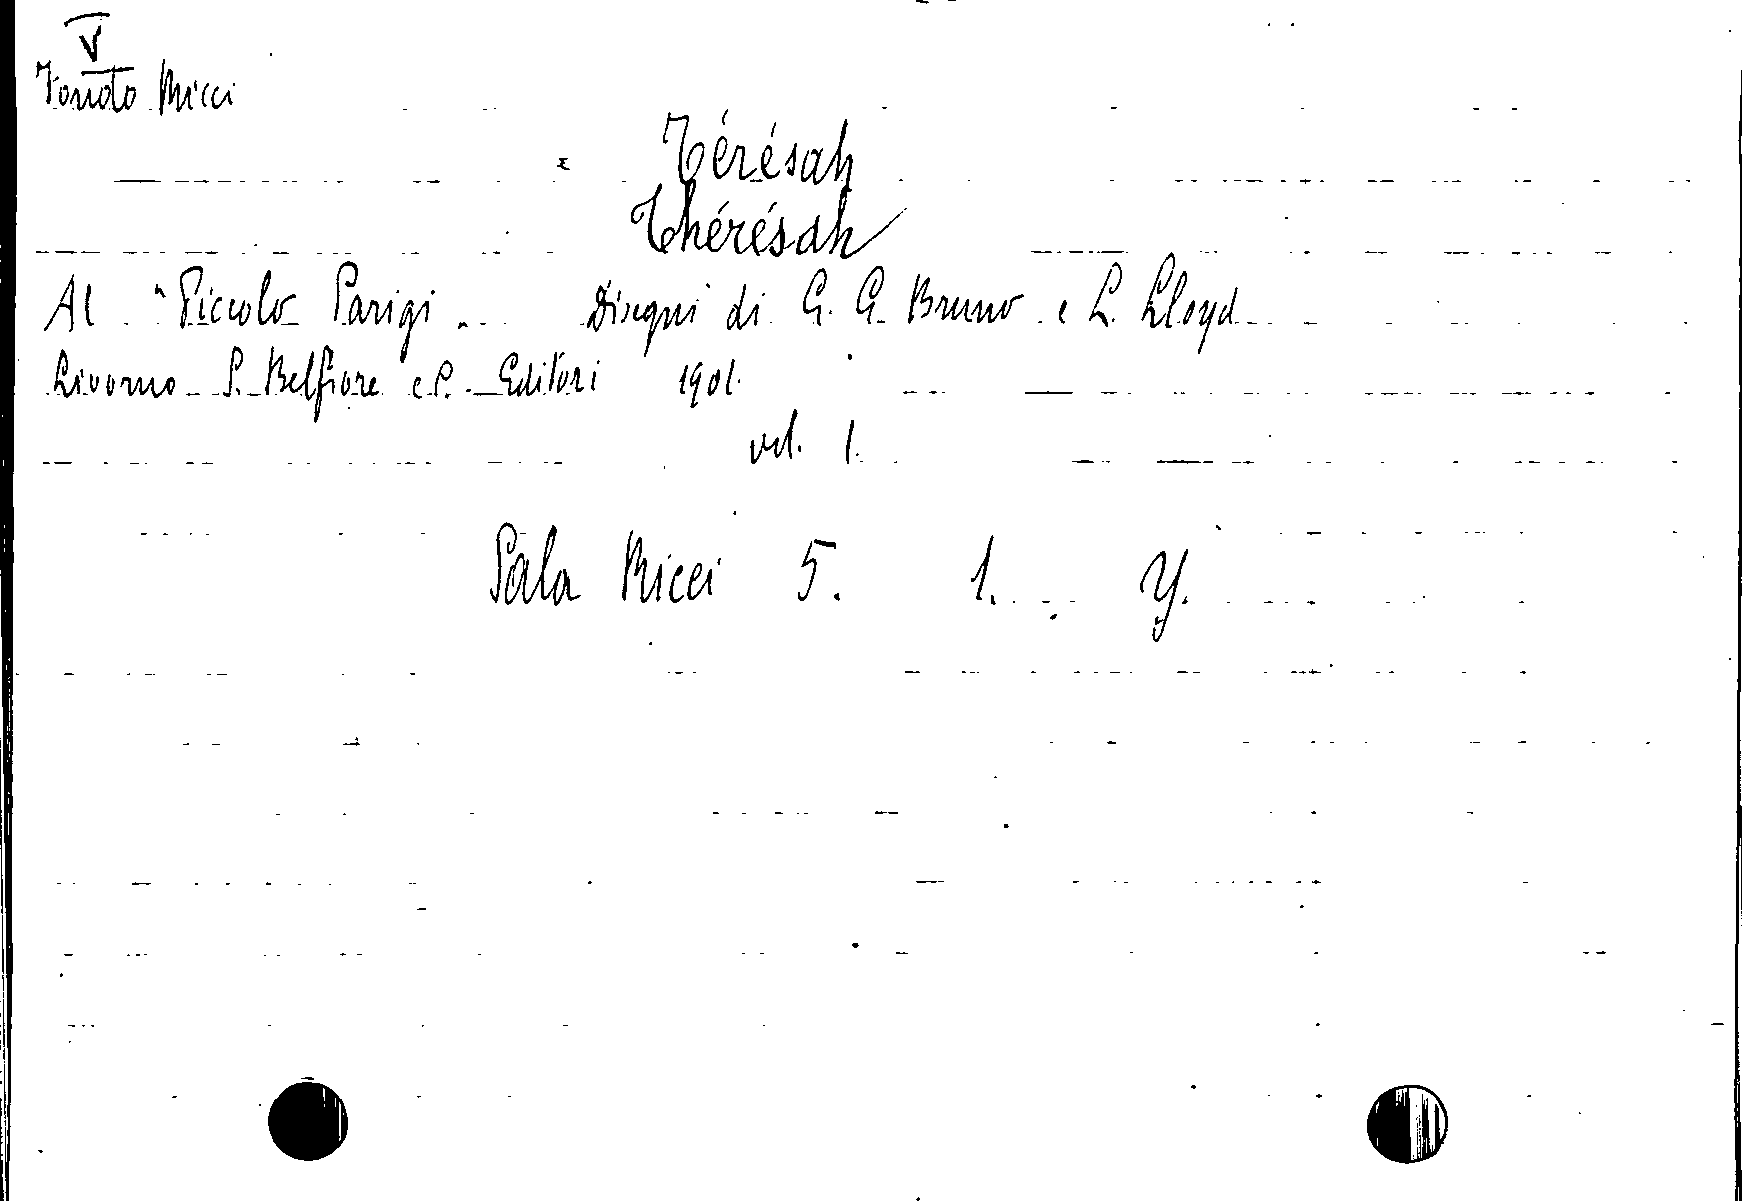 V
Fondo Ricci
Térésah
Thérésah
Al "Piccolo Parigi. Disegni di G. G. Bruno e L. Lloyd
Livorno S. Belforte e C. Editori 1901.
vol. 1.
Sala Ricci 5. 1. Y.